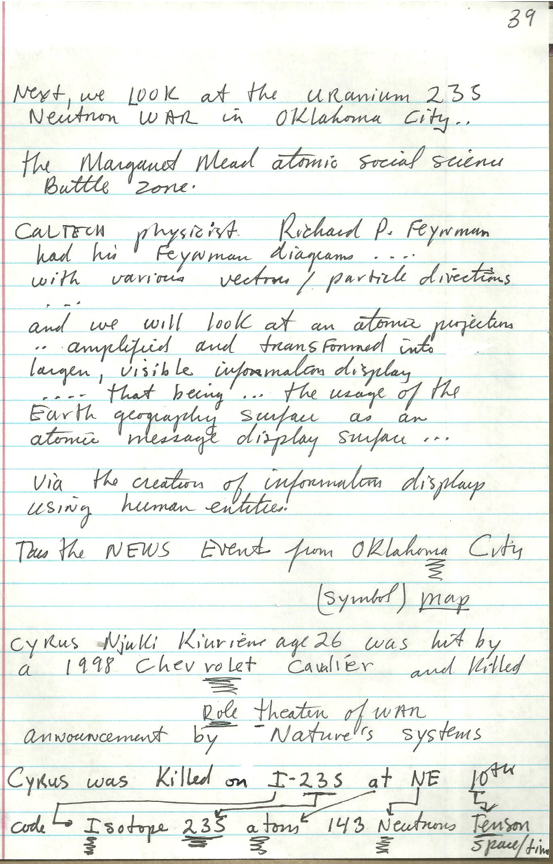 39
Next, we LOOK at the uranium 235
Neutron WAR in OKlahoma City..
the Margaret Mead atomic social science
Battle zone.
CALTECH physicist Richard P. Feynman
had his Feynman diagrams ....
with various vectors / particle directions
....
and we will look at an atomic projection
.. amplified and transformed into
larger, visible information display
.... that being ... the usage of the
Earth geography surface as an
atomic message display surface ...
Via the creation of information displays
using human entities.
Thus the NEWS Event from OKlahoma City
(symbol) map
Cyrus Njuki Kiuriene age 26 was hit by
a 1998 Chevrolet Cavalier and Killed
Role theater of WAR
announcement by Nature's systems
Cyrus was Killed on I-235 at NE 10th
code Isotope 235 atoms 143 Neutrons Tensor
Space/time